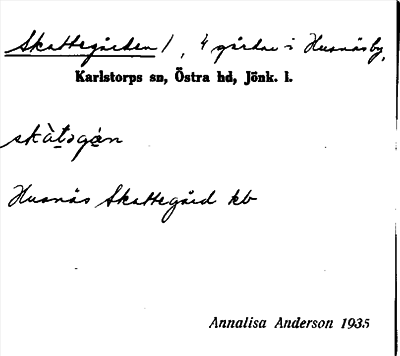 Skattegården 1, 4 gårdar i Husnäsby,
Karlstorps sn, Östra hd, Jönk. l.
skàtəgán
Husnäs Skattegård kb
Annalisa Anderson 1935